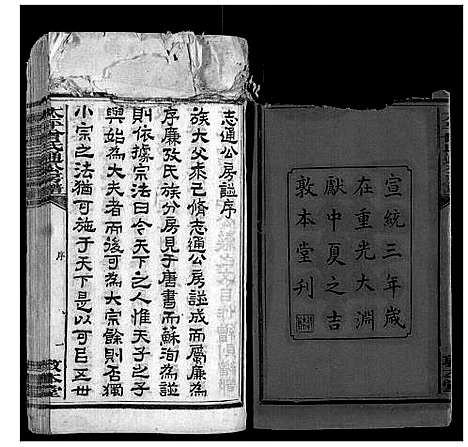 宣統三年歲
在重光大淵
獻中夏之吉
敦本堂刊
志通公房諡序
族大父秉己脩志通公房諡成而屬廉為
序廉攷氏族分房見于唐書而蘇洵為諡
則依據宗法曰今天下之人惟天子之子
與始為大夫者而後可為大宗餘則否獨
小宗之法猶可施于天下是以可㠯五世
序
一
敦本堂